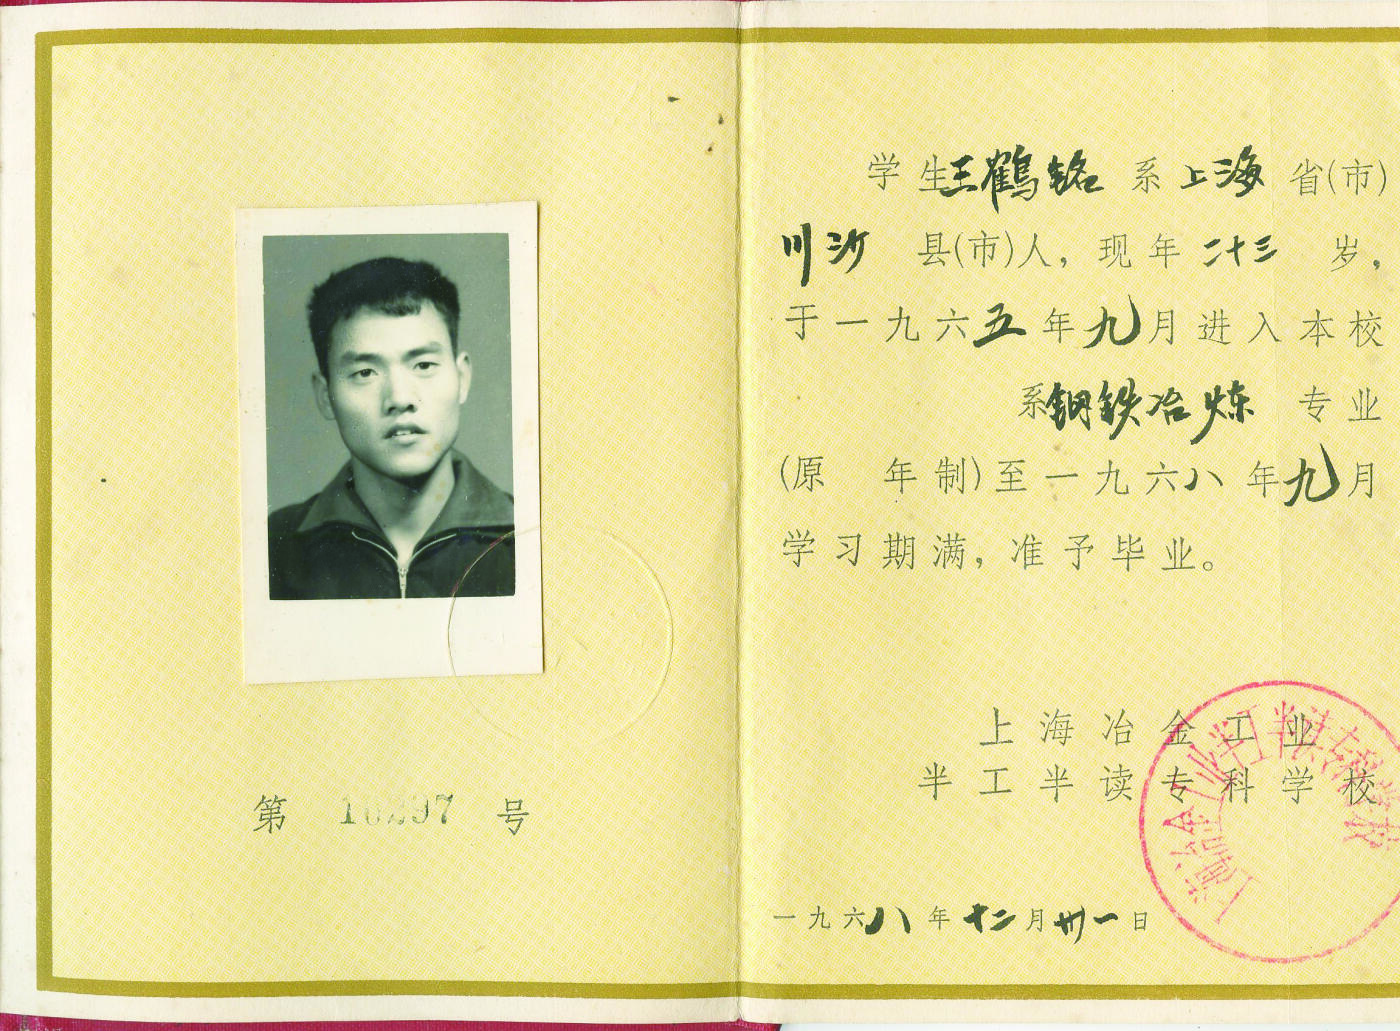 第 10297 号
学生王鹤铭系上海省(市)
川沙县(市)人，现年二十三岁，
于一九六五年九月进入本校
系钢铁冶炼专业
(原 年制)至一九六八年九月
学习期满，准予毕业。
上海冶金工业
半工半读专科学校
上海冶金工业半工半读专科学校
一九六八年十二月卅一日